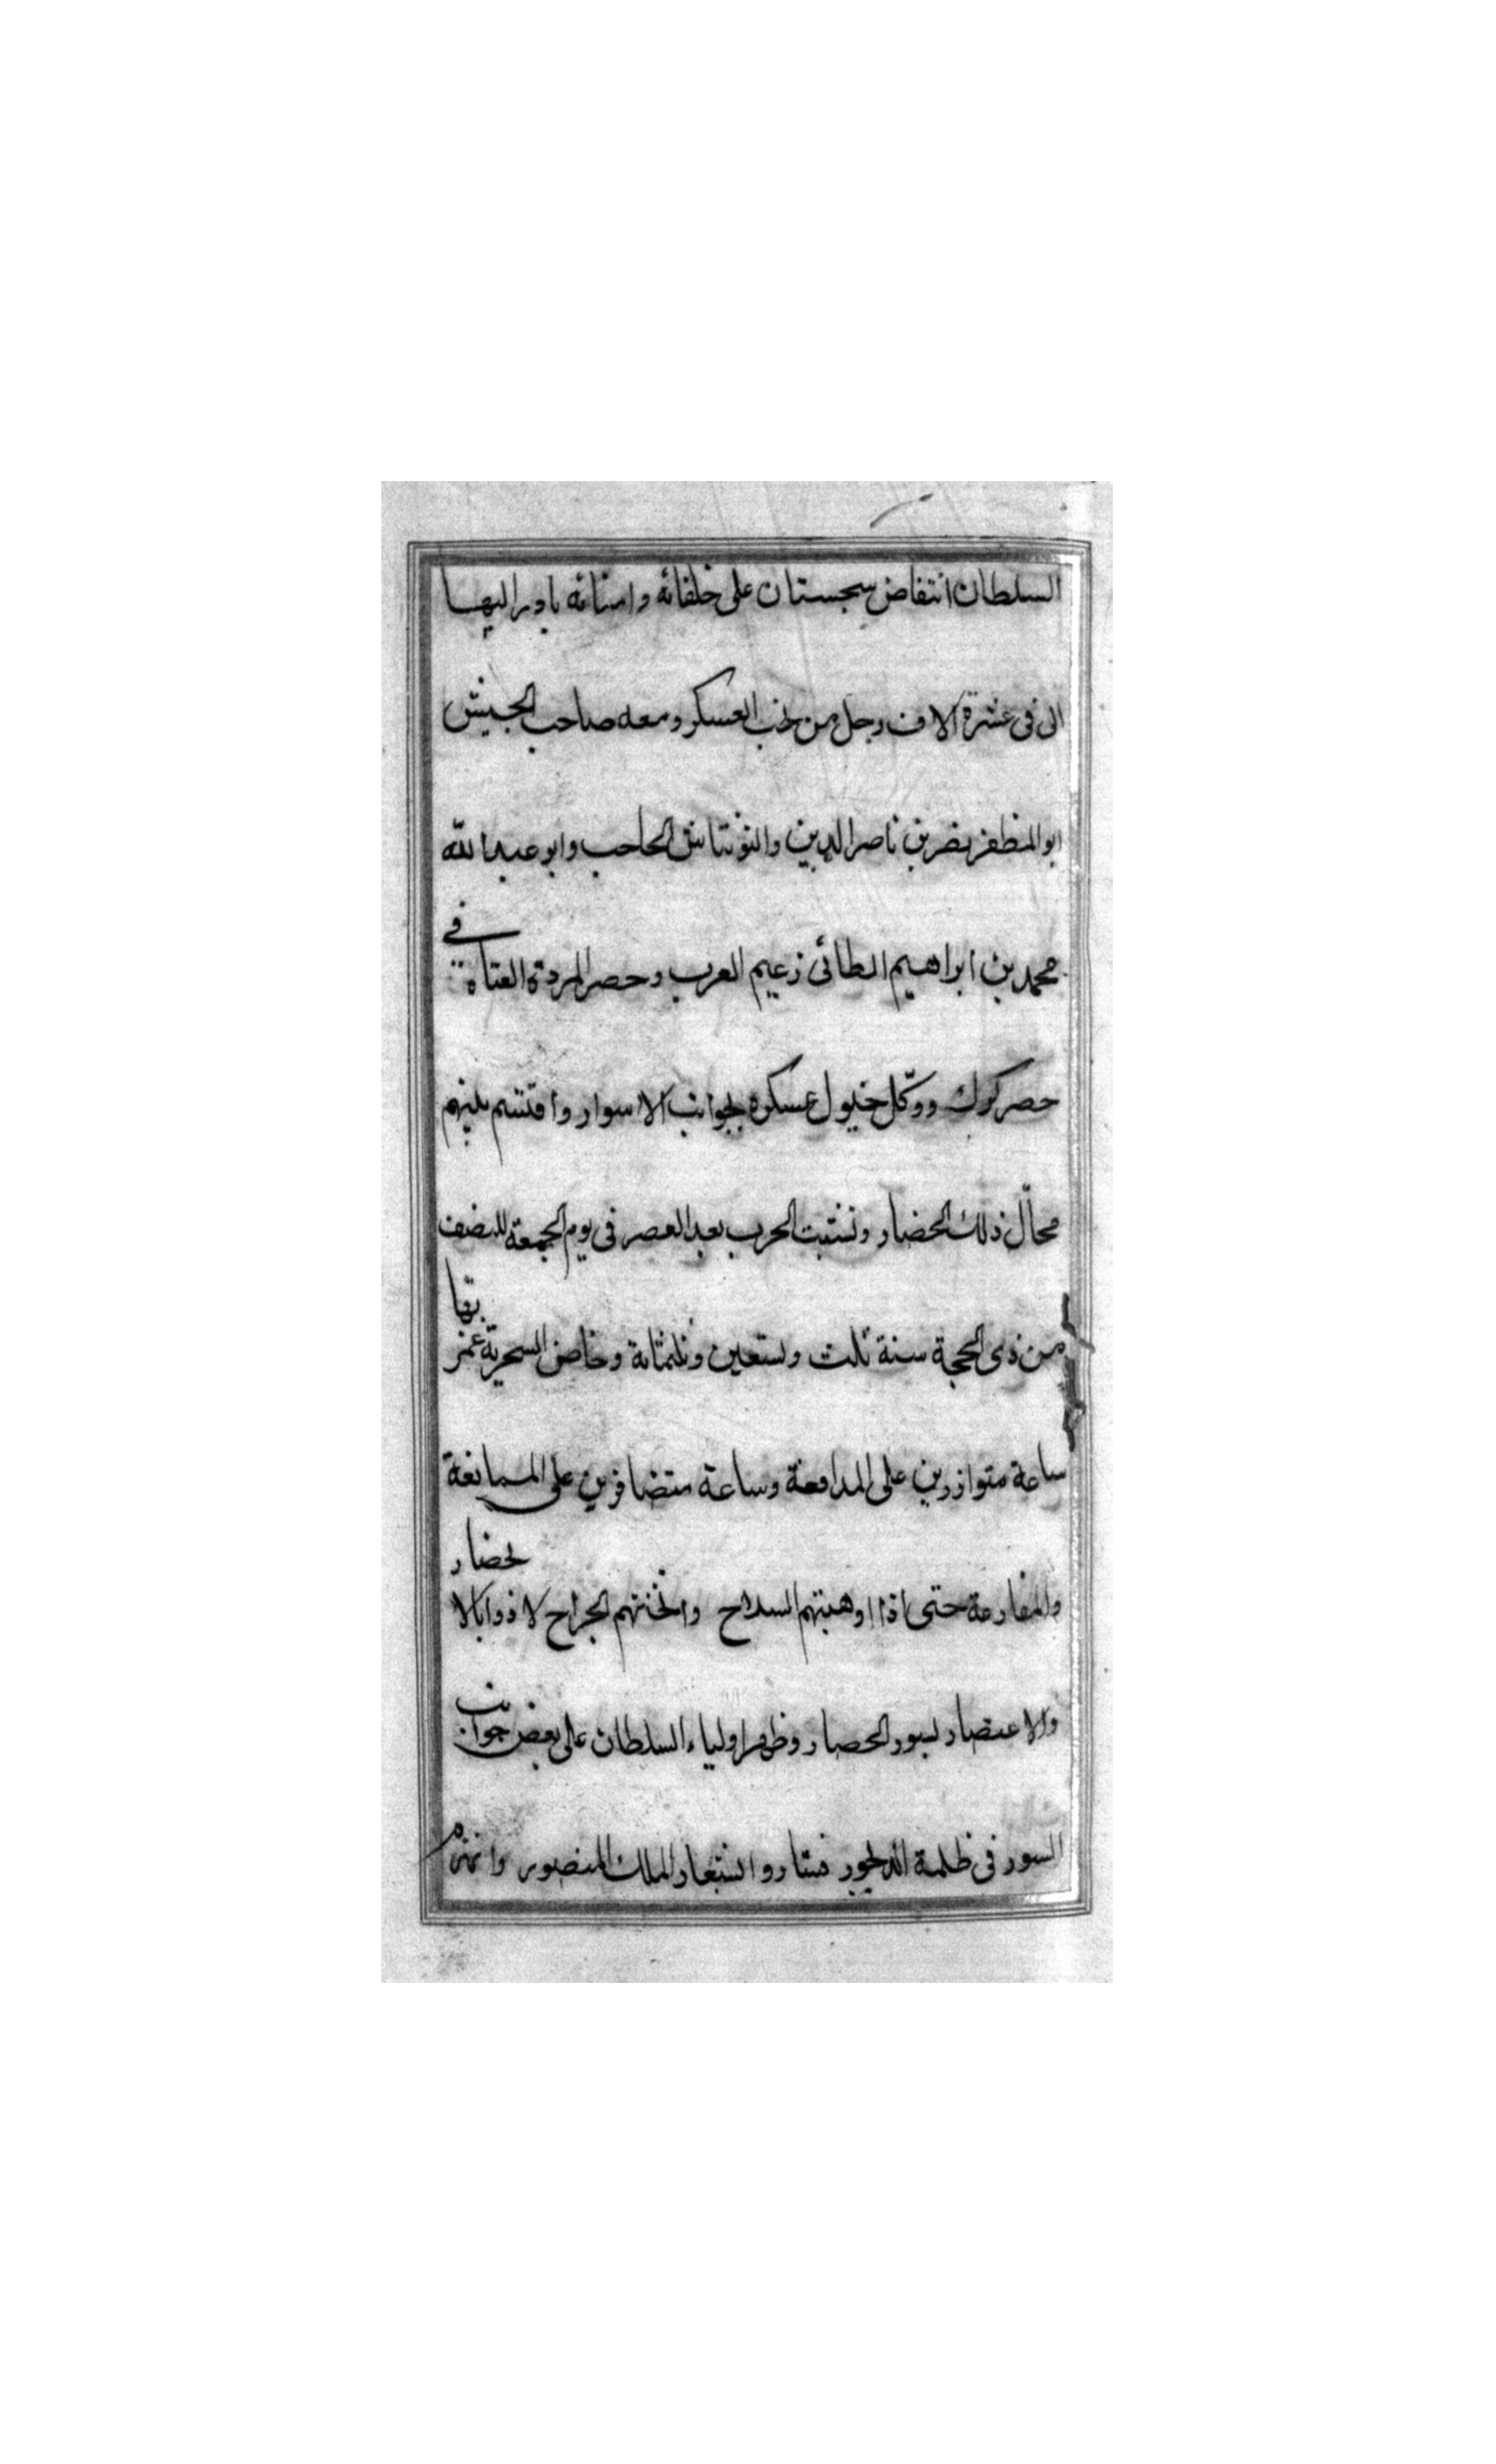 السلطان انتقاض سجستان على خلفائه وامنائه بادر اليها
الى فى عشرة الاف رجل من نخب العسكر ومعه صاحب الجيش
ابو المظفر نصر بن ناصر الدين والتونتاش الحاجب وابو عبد الله
محمد بن ابراهيم الطائى زعيم العرب وحصر المردة العتاة فى
حصر كوك ووكّل خيول عسكره بجوانب الاسوار واقتسم بينهم
محالّ ذلك الحضار ونشبت الحرب بعد العصر فى يوم الجمعة للنصف
من ذى الحجة سنة ثلث وتسعين وثلثمائة وخاض السجزية غمراتها
ساعة متوازرين على المدافعة وساعة متضافرين على الممانعة
والمقارعة حتى اذا اوهبتهم السلاح واثخنتهم الجراح لاذوا بالانحضار
والاعتصار بسور الحصار وظهر اولياء السلطان على بعض جوانب
السور فى ظلمة الديجور فنادوا بشعار الملك المنصور وانهزم